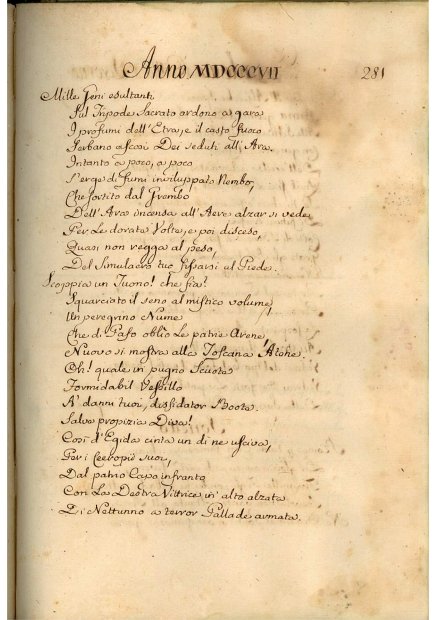 Anno MDCCCVII
281
Mille Geni esultanti
Sul Tripode Sacrato ardono a gara
I profumi dell'Etra, e il casto fuoco
Serbano ascosi Dei seduti all'Ara.
Intanto a poco, a poco
S'erge di fumi inviluppato Nembo,
Che sortito dal Grembo
Dell'Ara incensa all'Aere alzar si vede,
Per Le dorate Volte, e poi disceso,
Quasi non regga al peso,
Del Simulacro tuo fissarsi al Piede.
Scoppia un Tuono! che fia?
Squarciato il seno al mistico volume,
Un peregrino Nume
Che di Pafo obliò Le patrie Arene
Nuovo si mostra alla Toscana Atene.
Oh! quale in pugno Scuote
Formidabil Vessillo
A' danni tuoi, dissidator Boote.
Salve propizia Diva!
Così d'Egida cinta un dì ne usciva,
Per i Cecropii suoi,
Dal patrio Capo infranto
Con La Destra Vittrice in alto alzata
Di Nettunno a terror Pallade armata.